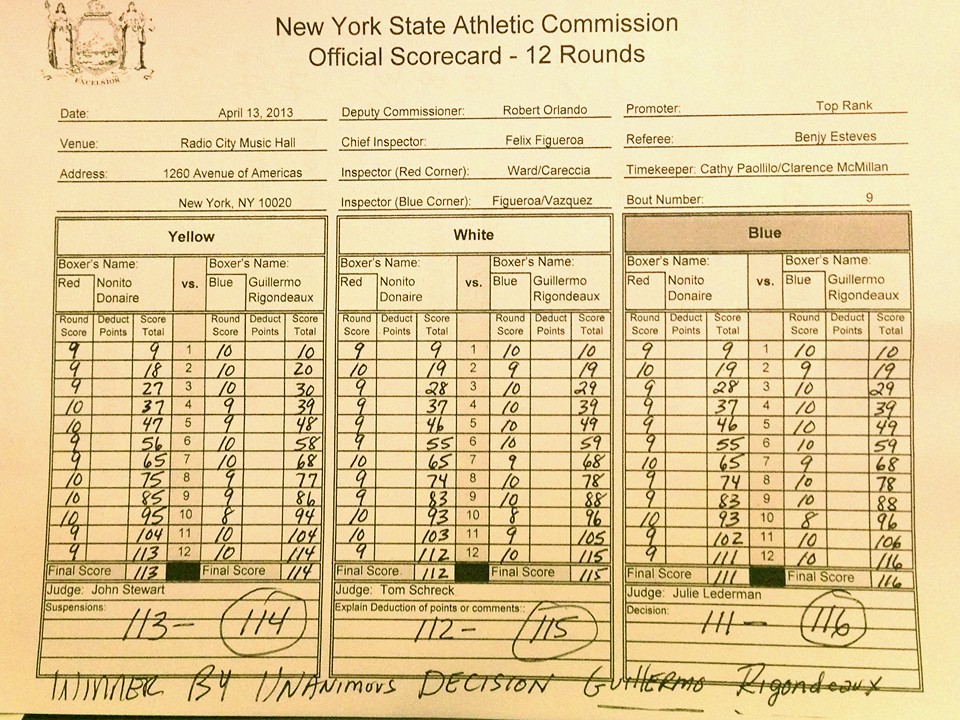 EXCELSIOR
New York State Athletic Commission
Official Scorecard - 12 Rounds
Date: April 13, 2013 Deputy Commissioner: Robert Orlando Promoter: Top Rank
Venue: Radio City Music Hall Chief Inspector: Felix Figueroa Referee: Benjy Esteves
Address: 1260 Avenue of Americas Inspector (Red Corner): Ward/Careccia Timekeeper: Cathy Paollilo/Clarence McMillan
New York, NY 10020 Inspector (Blue Corner): Figueroa/Vazquez Bout Number: 9
Yellow White Blue
Boxer's Name: Boxer's Name: Boxer's Name: Boxer's Name: Boxer's Name: Boxer's Name:
Red Nonito vs. Blue Guillermo Red Nonito vs. Blue Guillermo Red Nonito vs. Blue Guillermo
Donaire Rigondeaux Donaire Rigondeaux Donaire Rigondeaux
Round Deduct Score Round Deduct Score Round Deduct Score Round Deduct Score Round Deduct Score Round Deduct Score
Score Points Total Score Points Total Score Points Total Score Points Total Score Points Total Score Points Total
9 9 1 10 10 9 9 1 10 10 9 9 1 10 10
9 18 2 10 20 10 19 2 9 19 10 19 2 9 19
9 27 3 10 30 9 28 3 10 29 9 28 3 10 29
10 37 4 9 39 9 37 4 10 39 9 37 4 10 39
10 47 5 9 48 9 46 5 10 49 9 46 5 10 49
9 56 6 10 58 9 55 6 10 59 9 55 6 10 59
9 65 7 10 68 10 65 7 9 68 10 65 7 9 68
10 75 8 9 77 9 74 8 10 78 9 74 8 10 78
10 85 9 9 86 9 83 9 10 88 9 83 9 10 88
10 95 10 8 94 10 93 10 8 96 10 93 10 8 96
9 104 11 10 104 10 103 11 9 105 9 102 11 10 106
9 113 12 10 114 9 112 12 10 115 9 111 12 10 116
Final Score 113 Final Score 114 Final Score. 112 Final Score: 115 Final Score 111 Final Score 116
Judge: John Stewart Judge: Tom Schreck Judge: Julie Lederman
Suspensions: Explain Deduction of points or comments:: Decision:
113- 114 112- 115 111- 116
WINNER BY UNANIMOUS DECISION GUILLERMO Rigondeaux